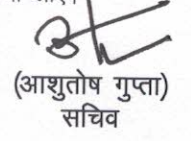 (आशुतोष गुप्ता)
सचिव